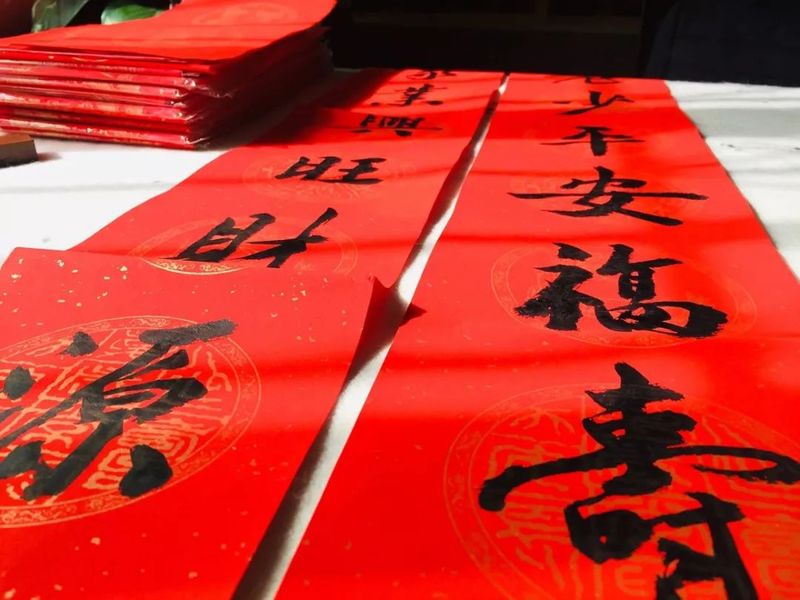 老少平安福壽
家業興旺財源